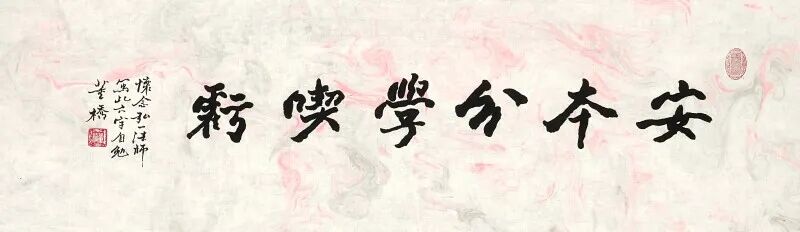 安本分學喫虧
懷念弘一法師
寫此六字自勉
董橋